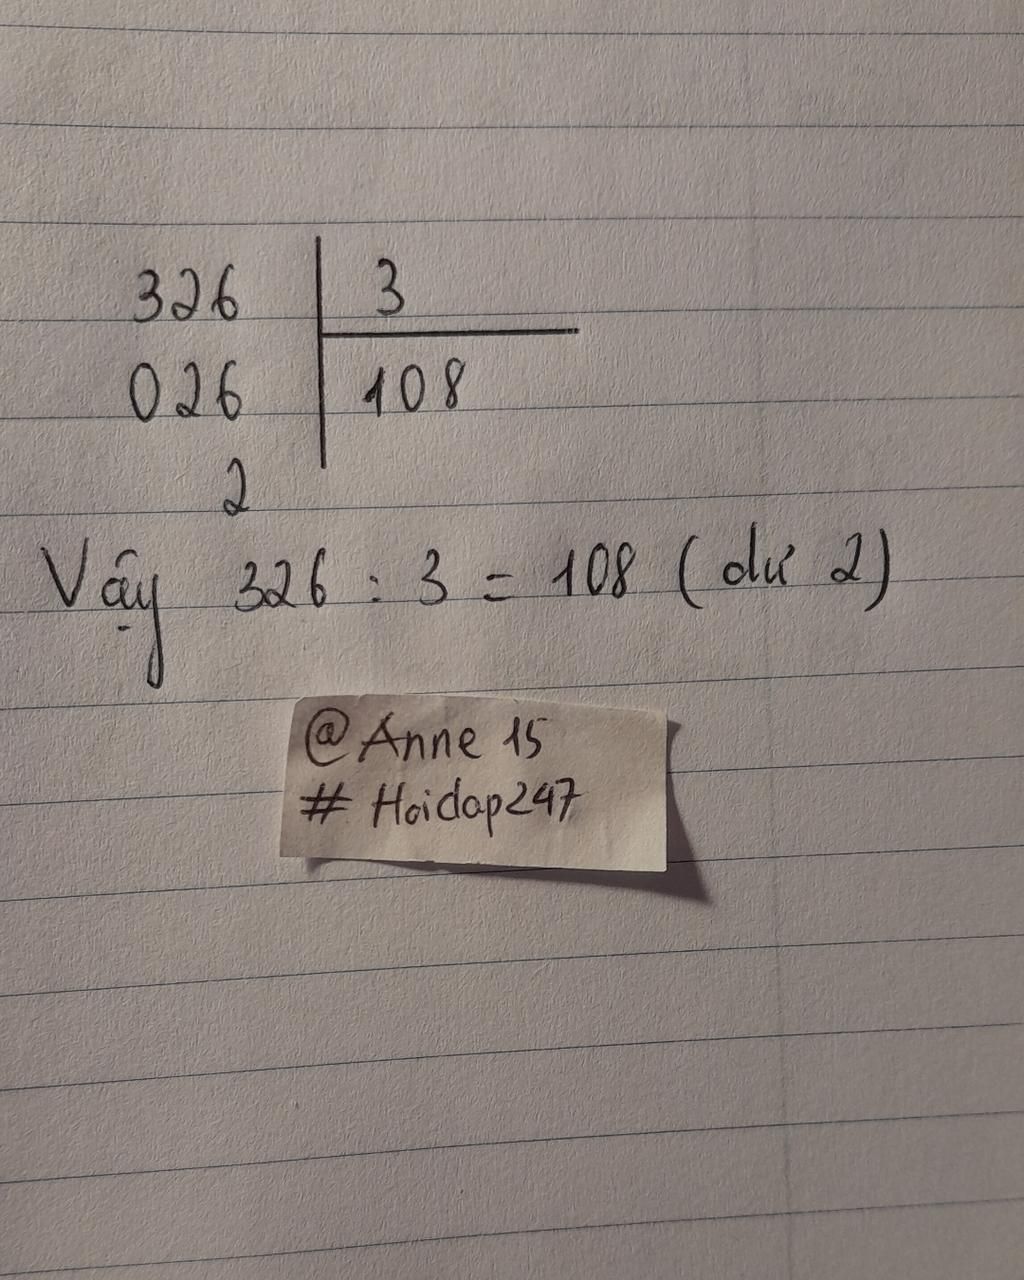 326 3
026 108
2
Vậy 326 : 3 = 108 (dư 2)
@Anne 15
# Hoidap247